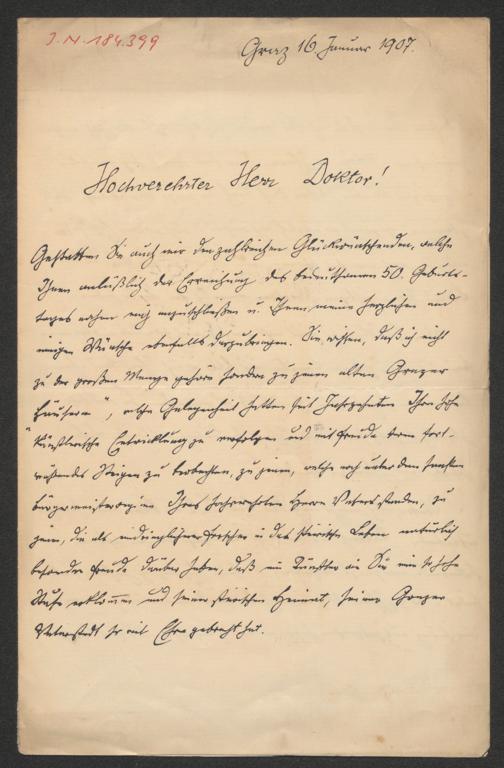 J. N. 184.399
Graz 16 Januar 1907.
Hochverehrter Herr Doktor!
Gestatten Sie auch mir den zahlreichen Glückwünschenden, welche
Ihnen anläßlich der Erreichung des bedeutsamen 50. Geburts-
tages nahen mich anzuschließen u. Ihnen meine herzlichen und
innigen Wünsche ebenfalls darzubringen. Sie wissen, daß ich nicht
zu der großen Menge gehöre sondern zu jenen alten Grazer
Häusern", welche Gelegenheit hatten seit Jahrzehnten Ihre hohe
künstlerische Entwicklung zu verfolgen und mit Freude deren fort-
währendes Steigen zu beobachten, zu jenen, welche noch unter dem
bürgermeister Ihres Herrn Vaters standen, zu
jenen, die als in das Leben natürlich
besondere Freude darüber haben, daß ein Künstler wie Sie eine so hohe
Stufe erklommen und seiner steirischen Heimat, seiner Grazer
Vaterstadt so viel Ehre gebracht hat.